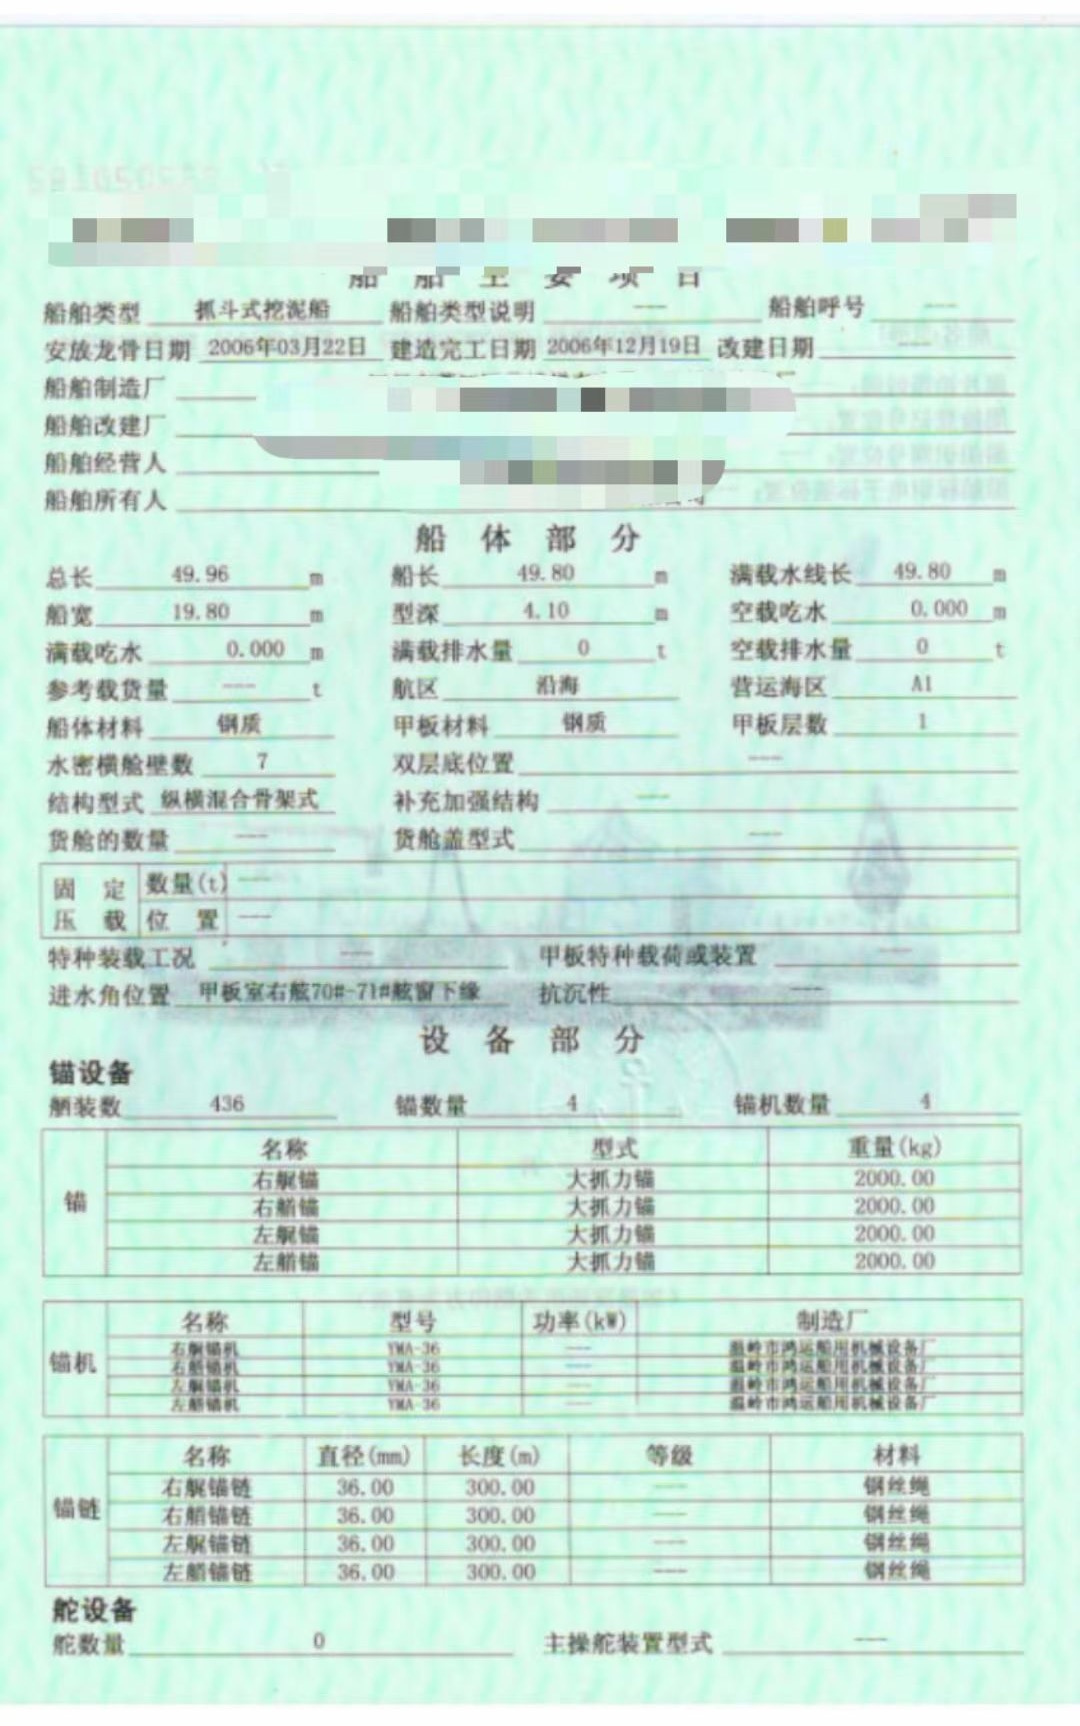 船舶主要项目
船舶类型 抓斗式挖泥船 船舶类型说明 --- 船舶呼号 ---
安放龙骨日期 2006年03月22日 建造完工日期 2006年12月19日 改建日期 ---
船舶制造厂
船舶改建厂
船舶经营人
船舶所有人
船体部分
总长 49.96 m 船长 49.80 m 满载水线长 49.80 m
船宽 19.80 m 型深 4.10 m 空载吃水 0.000 m
满载吃水 0.000 m 满载排水量 0 t 空载排水量 0 t
参考载货量 --- t 航区 沿海 营运海区 A1
船体材料 钢质 甲板材料 钢质 甲板层数 1
水密横舱壁数 7 双层底位置 ---
结构型式 纵横混合骨架式 补充加强结构 ---
货舱的数量 --- 货舱盖型式 ---
固定压载 数量(t) ---
位置 ---
特种装载工况 --- 甲板特种载荷或装置 ---
进水角位置 甲板室右舷70#-71#舷窗下缘 抗沉性 ---
设备部分
锚设备
舾装数 436 锚数量 4 锚机数量 4
锚 名称 型式 重量(kg)
右艉锚 大抓力锚 2000.00
右艏锚 大抓力锚 2000.00
左艉锚 大抓力锚 2000.00
左艏锚 大抓力锚 2000.00
锚机 名称 型号 功率(kW) 制造厂
右艉锚机 YMA-36 --- 温岭市鸿运船用机械设备厂
右艏锚机 YMA-36 --- 温岭市鸿运船用机械设备厂
左艉锚机 YMA-36 --- 温岭市鸿运船用机械设备厂
左艏锚机 YMA-36 --- 温岭市鸿运船用机械设备厂
锚链 名称 直径(mm) 长度(m) 等级 材料
右艉锚链 36.00 300.00 --- 钢丝绳
右艏锚链 36.00 300.00 --- 钢丝绳
左艉锚链 36.00 300.00 --- 钢丝绳
左艏锚链 36.00 300.00 --- 钢丝绳
舵设备
舵数量 0 主操舵装置型式 ---